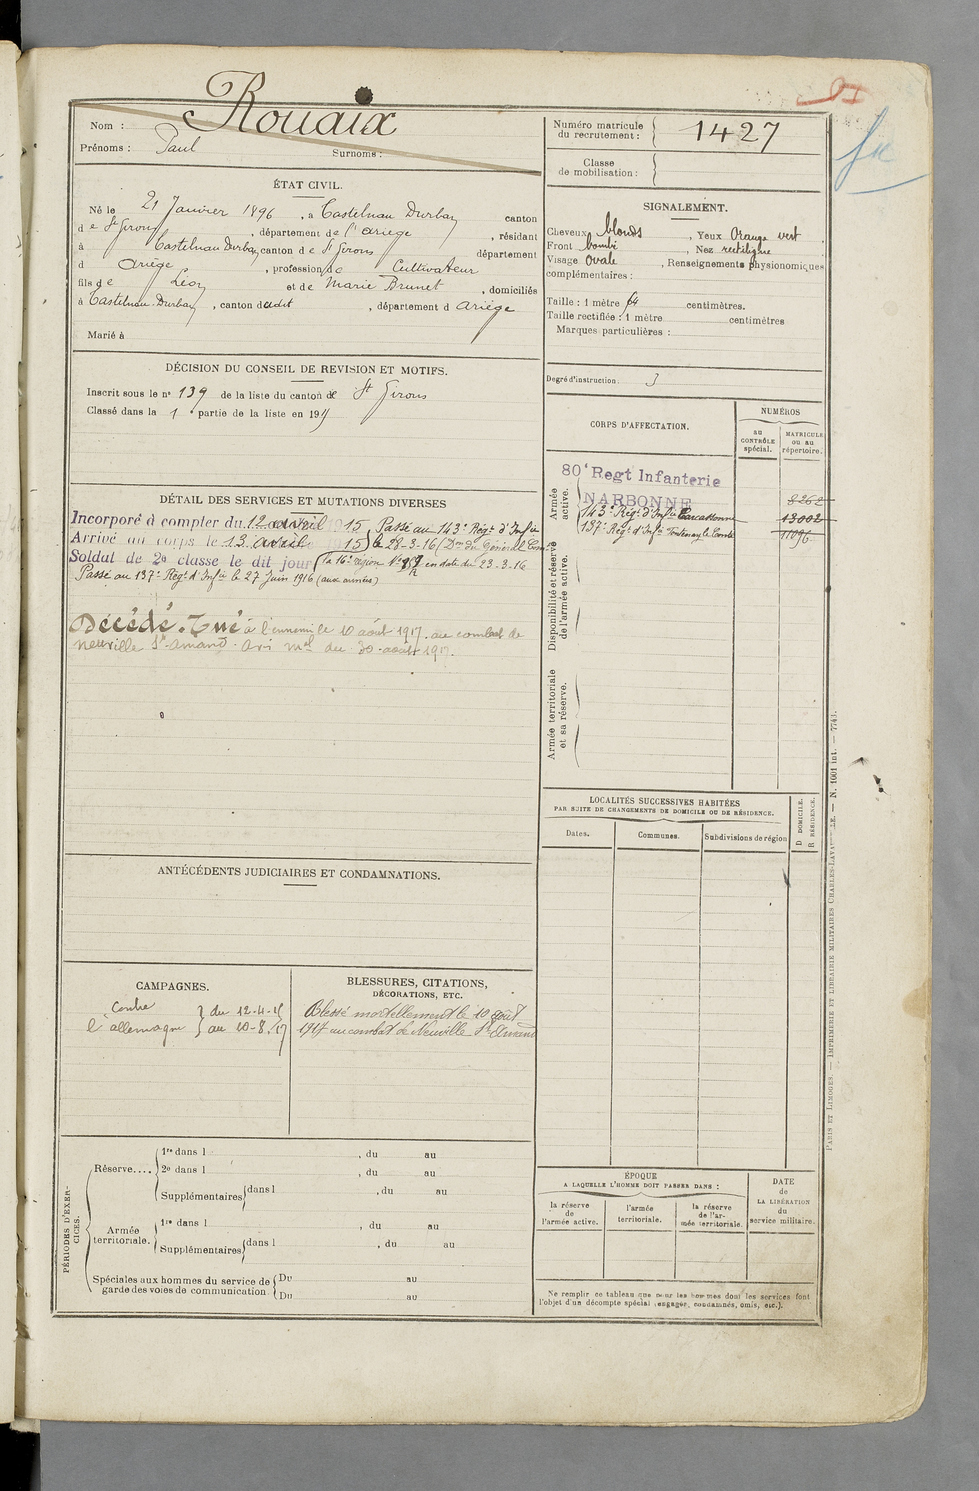 Rouaix
Nom :
Prénoms : Paul
Surnoms :
Numéro matricule
du recrutement :
1427
Classe
de mobilisation :
ÉTAT CIVIL.
Né le 21 Janvier 1896, à Castelnau Durban canton
de St Girons, département de l'Ariège, résidant
à Castelnau Durban canton de St Girons département
d Ariège, profession de Cultivateur
fils de Léon et de Marie Brunet, domiciliés
à Castelnau-Durban, canton dudit, département d Ariège
Marié à
SIGNALEMENT.
Cheveux blonds, Yeux Orange vert
Front bombé, Nez rectiligne
Visage Ovale, Renseignements physionomiques
complémentaires :
Taille : 1 mètre 64 centimètres.
Taille rectifiée : 1 mètre centimètres
Marques particulières :
Degré d'instruction. 3
DÉCISION DU CONSEIL DE REVISION ET MOTIFS.
Inscrit sous le n° 139 de la liste du canton de St Girons
Classé dans la 1e partie de la liste en 191
CORPS D'AFFECTATION.
NUMÉROS
au
CONTRÔLE
spécial.
MATRICULE
ou au
répertoire.
Armée
active.
80e Regt Infanterie
NARBONNE
8262
143e Régt d'Infie Carcassonne 13002
137e Régt d'Infie Fontenay le Comte 11096
Disponibilité et réserve
de l'armée active.
Armée territoriale
et sa réserve.
DÉTAIL DES SERVICES ET MUTATIONS DIVERSES
Incorporé à compter du 12 avril 1915 Passé au 143e Régt d'Infie
Arrivé au corps le 13 avril 1915 le 28-3-16 (Don du Général Com
Soldat de 2e classe le dit jour la 16e région N° en date du 23-3-16
Passé au 137e Régt d'Infie le 27 Juin 1916 (aux armées)
Décédé. Tué à l'ennemi le 10 août 1917. au combat de
Neuville St-Amand. Avis mel du 30 août 1917.
LOCALITÉS SUCCESSIVES HABITÉES
PAR SUITE DE CHANGEMENTS DE DOMICILE OU DE RÉSIDENCE.
Dates.
Communes.
Subdivisions de région
D DOMICILE.
R RÉSIDENCE.
ANTÉCÉDENTS JUDICIAIRES ET CONDAMNATIONS.
CAMPAGNES.
Contre
l'allemagne
du 12-4-15
au 10-8-17
BLESSURES, CITATIONS,
DÉCORATIONS, ETC.
Blessé mortellement le 10 août
1917 au combat de Neuville St Amand
PÉRIODES D'EXER-
CICES.
Réserve....
1re dans l , du au
2e dans l , du au
Supplémentaires dans l , du au
Armée
territoriale.
1re dans l , du au
Supplémentaires dans l , du au
Spéciales aux hommes du service de
garde des voies de communication.
Du au
Du au
ÉPOQUE
A LAQUELLE L'HOMME DOIT PASSER DANS :
la réserve
de
l'armée active.
l'armée
territoriale.
la réserve
de l'ar-
mée territoriale.
DATE
de
LA LIBÉRATION
du
service militaire.
Ne remplir ce tableau que pour les hommes dont les services font
l'objet d'un décompte spécial (engagés, condamnés, omis, etc.).
PARIS ET LIMOGES. — IMPRIMERIE ET LIBRAIRIE MILITAIRES CHARLES-LAVAUZELLE. — N. 1001 int. — 7743.